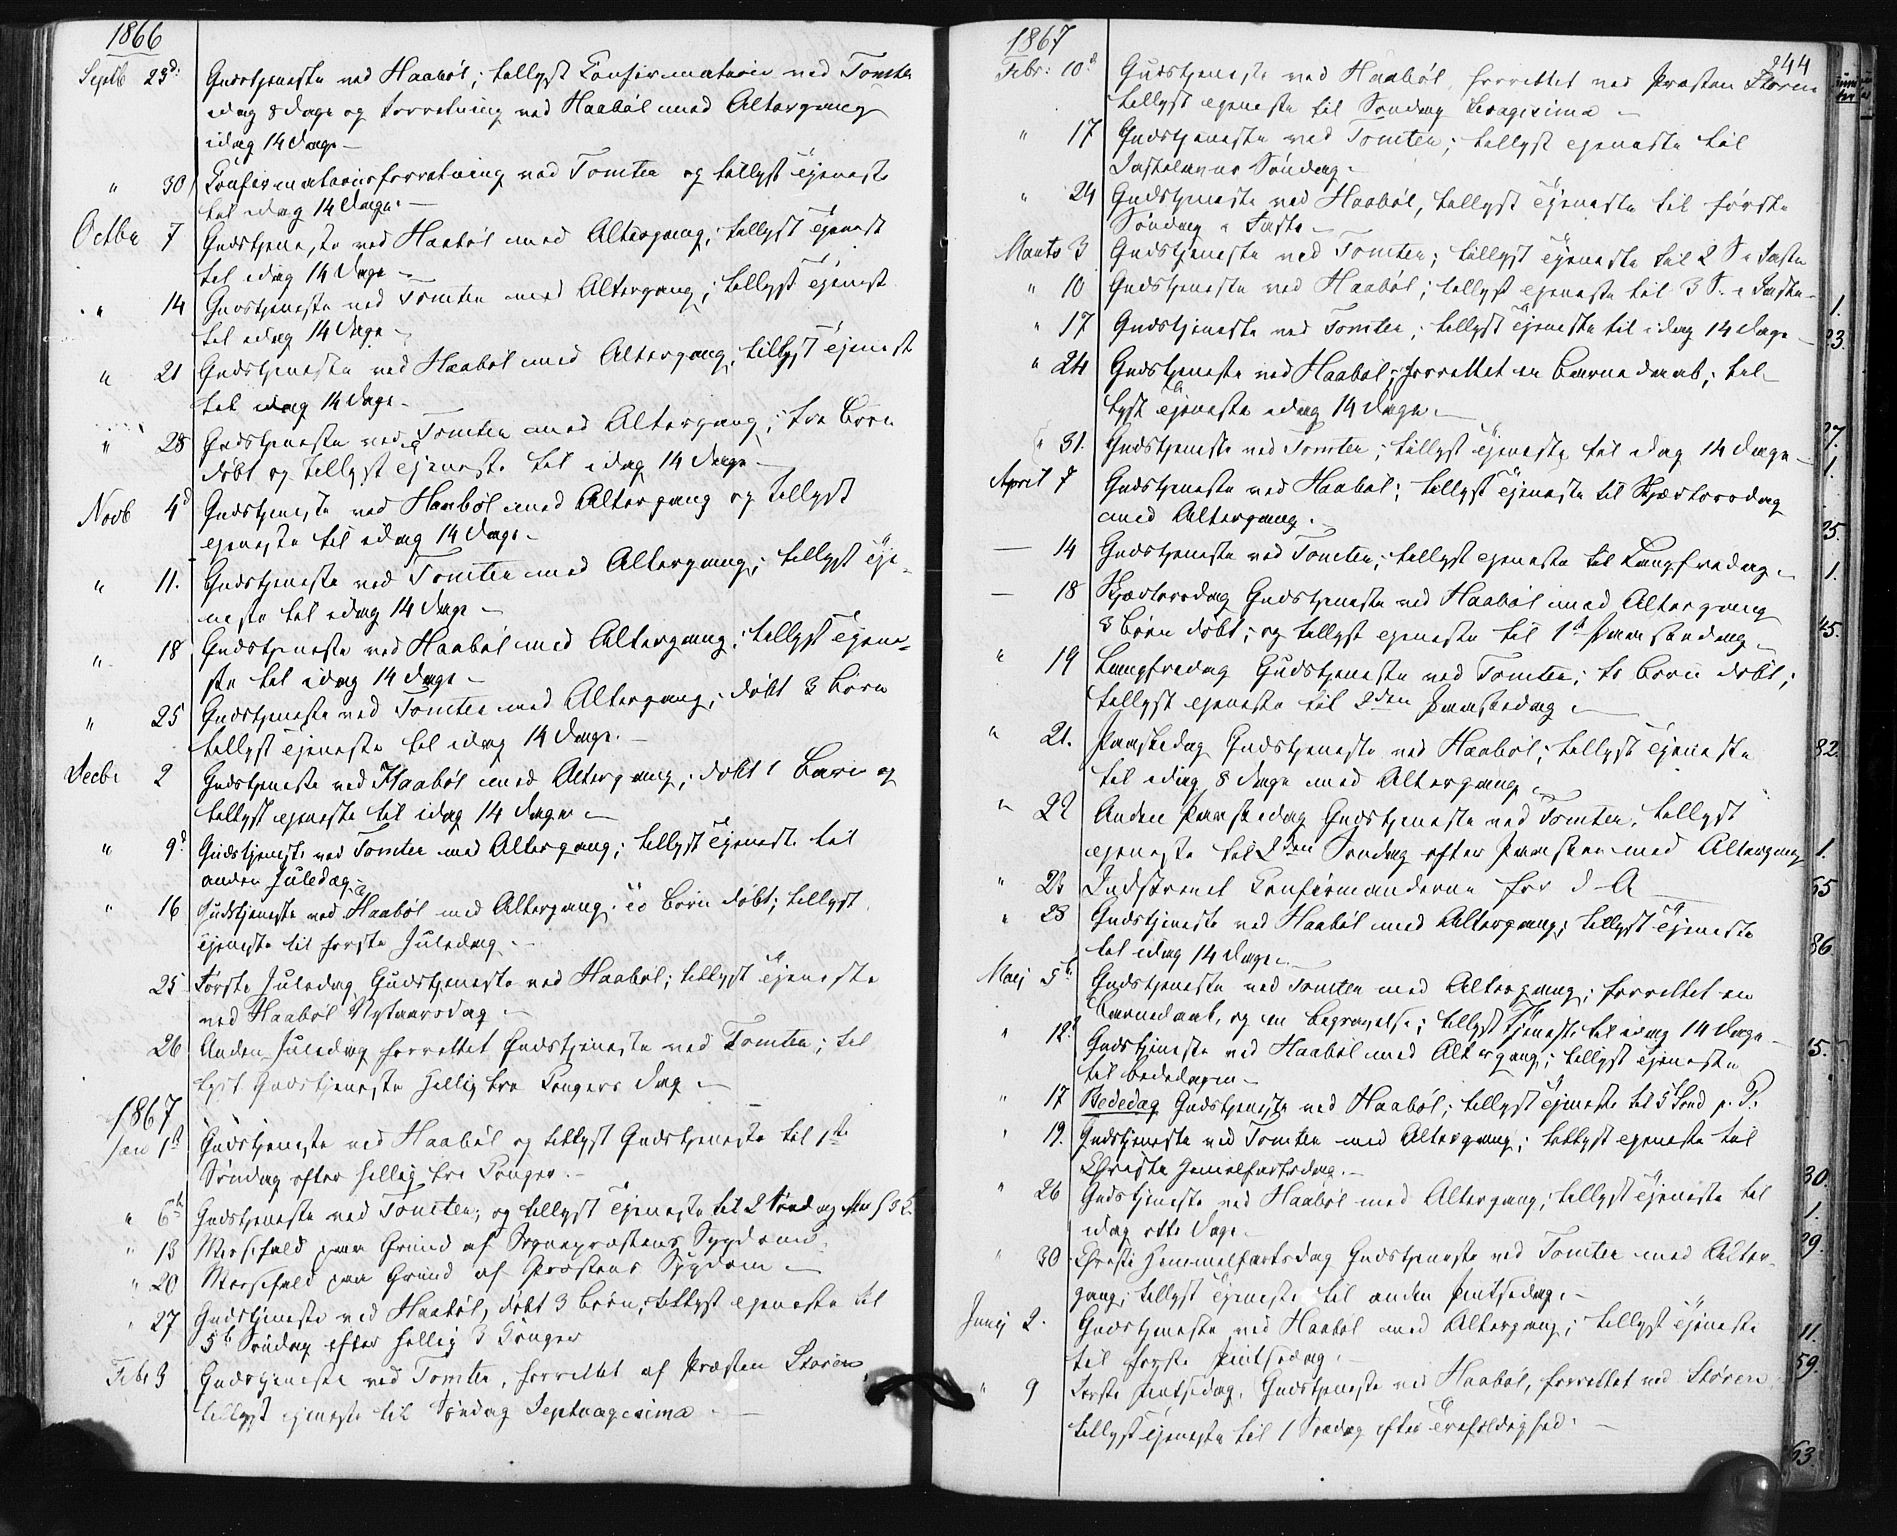 1866
Septb 23d: Gudstjeneste ved Haabøl; tillyst Confirmation ved Tomter
idag 8 Dage og Forretning ved Haabøl med Altergang
idag 14 Dage –
" 30 Confirmationsforretning ved Tomter og tillyst Tjeneste
til idag 14 Dage. –
Octbr 7 Gudstjeneste ved Haabøl med Altergang; tillyst Tjenest
til idag 14 Dage –
" 14 Gudstjeneste ved Tomter med Altergang; tillyst Tjenest
til idag 14 Dage –
" 21 Gudstjeneste ved Haabøl med Altergang; tillyst Tjeneste
til idag 14 Dage –
" 28 Gudstjeneste ved Tomter med Altergang; tre Børn
døbt og tillyst Tjeneste til idag 14 Dage –
Novb 4d Gudstjeneste ved Haabøl med Altergang og tillyst
Tjeneste til idag 14 Dage –
" 11. Gudstjeneste ved Tomter med Altergang; tillyst Tje-
neste til idag 14 Dage –
" 18 Gudstjeneste ved Haabøl med Altergang; tillyst Tjene-
ste til idag 14 Dage –
" 25 Gudstjeneste ved Tomter med Altergang; døbt 3 Børn
tillyst Tjeneste til idag 14 Dage. –
Decbr 2 Gudstjeneste ved Haabøl med Altergang; døbt 1 Barn og
tillyst Tjeneste til idag 14 Dage –
" 9d Gudstjeneste ved Tomter med Altergang; tillyst Tjeneste til
anden Juledag –
" 16 Gudstjeneste ved Haabøl med Altergang; Børn døbt; tillyst
Tjeneste til første Juledag. –
25 Første Juledag Gudstjeneste ved Haabøl; tillyst Tjeneste
ved Haabøl Nytaarsdag –
26 Anden Juledag forrettet Gudstjeneste ved Tomter; til
lyst Gudstjeneste Hellig tre Kongers Dag –
1867
Jan 1st Gudstjeneste ved Haabøl og tillyst Gudstjeneste til 1ste
Søndag efter Hellig tre Konger. –
" 6te Gudstjeneste ved Tomter; og tillyst Tjeneste til 2 Søndag
" 13 Messefald paa Grund af Sognepræstens Sygdom
" 20 Messefald paa Grund af Præstens Sygdom –
" 27 Gudstjeneste ved Haabøl, døbt 3 Børn; tillyst Tjeneste til
5te Søndag efter Hellig 3 Konger
Febr 3 Gudstjeneste ved Tomter, forrettet af Præsten Støren
tillyst Tjeneste til Søndag Septuagesima –
1867
244
Febr: 10d Gudstjeneste ved Haabøl, forrettet ved Præsten Støren
tillyst Tjeneste til Søndag Sexagesima –
" 17 Gudstjeneste ved Tomter; tillyst Tjeneste til
Fastelavns Søndag –
" 24 Gudstjeneste ved Haabøl, tillyst Tjeneste til første
Søndag i Faste –
Marts 3 Gudstjeneste ved Tomter; tillyst Tjeneste til 2 S i Faste
" 10 Gudstjeneste ved Haabøl; tillyst Tjeneste til 3 S. i Faste –
" 17 Gudstjeneste ved Tomter; tillyst Tjeneste til idag 14 Dage –
" 24 Gudstjeneste ved Haabøl; forrettet en Barnedaab; til-
lyst Tjeneste idag 14 Dage –
" 31. Gudstjeneste ved Tomter; tillyst Tjeneste til idag 14 Dage –
April 7 Gudstjeneste ved Haabøl; tillyst Tjeneste til Skjærtorsdag
med Altergang. –
– 14 Gudstjeneste ved Tomter; tillyst Tjeneste til Langfredag –
– 18 Skjærtorsdag Gudstjeneste ved Haabøl med Altergang
3 Børn døbt; og tillyst Tjeneste til 1st Paaskedag –
" 19 Langfredag Gudstjeneste ved Tomter; to Børn døbt;
tillyst Tjeneste til 2den Paaskedag –
" 21. Paaskedag Gudstjeneste ved Haabøl; tillyst Tjeneste
til idag 8 Dage med Altergang –
" 22 Anden Paaskedag Gudstjeneste ved Tomter, tillyst
Tjeneste til 2den Søndag efter Paasken med Altergang
" 23 Indskrevet Confirmanderne for d A –
" 28 Gudstjeneste ved Haabøl med Altergang; tillyst Tjeneste
til idag 14 Dage –
Maij 5te Gudstjeneste ved Tomter med Altergang; forrettet en
Barnedaab, og en Begravelse; tillyst Tjeneste til idag 14 Dage –
" 12d Gudstjeneste ved Haabøl med Altergang; tillyst Tjeneste
til Bededagen –
" 17 Bededag Gudstjeneste ved Haabøl; tillyst Tjeneste til 5 Sønd p. P.
" 19. Gudstjeneste ved Tomter med Altergang; tillyst Tjeneste til
Christi Himmelfartsdag. –
" 26 Gudstjeneste ved Haabøl med Altergang; tillyst Tjeneste til
idag otte Dage –
" 30 Christi Himmelfartsdag Gudstjeneste ved Tomter med Alter-
gang; tillyst Tjeneste til anden Pintsedag –
Junij 2. Gudstjeneste ved Haabøl med Altergang; tillyst Tjeneste
til første Pintsedag. –
" 9 Første Pintsedag, Gudstjeneste ved Haabøl, forrettet ved Støren
tillyst Tjeneste til 1 Søndag efter Trefoldighed. –